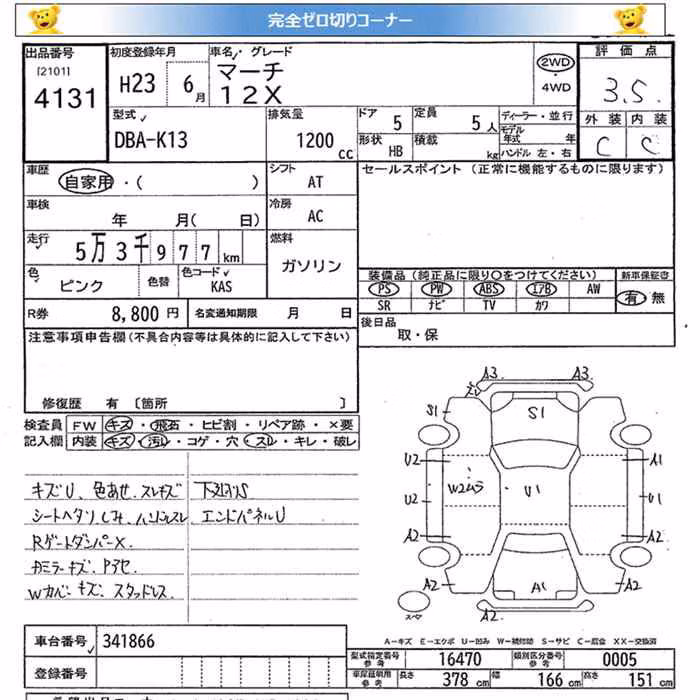 完全ゼロ切りコーナー
出品番号 初度登録年月 車名・グレード 評価点
[2101] マーチ 2WD
4131 H23 6月 12X 4WD 3.5
型式 排気量 ドア 定員 ディーラー・並行 外装 内装
DBA-K13 1200cc 5 5人 モデル年式 年 C C
形状 HB 積載 kg ハンドル 左・右
車歴 シフト セールスポイント (正常に機能するものに限ります)
自家用・( ) AT
車検 冷房
年 月( 日) AC
走行 燃料
5万3千977km ガソリン
色 色替 色コード 装備品 (純正品に限り○をつけてください) 新車保証書
ピンク KAS PS PW ABS エアB AW 有 無
SR ナビ TV カワ
R券 8,800円 名変通知期限 月 日 後日品
取・保
注意事項申告欄(不具合内容等は具体的に記入して下さい)
修復歴 有 [箇所 ]
検査員 FW キズ・飛石・ヒビ割・リペア跡・×要
記入欄 内装 キズ・汚レ・コゲ・穴・スレ・キレ・破レ
キズU、色あせ、スレキズ 下回りS
シートヘタリ、しみ、ハンドルスレ エンドパネルU
RゲートダンパーX
カミラーキズ、
Wカバーキズ、スタッドレス
A3 A3
S1 S1
U2 A1
U2 W2ムラ U1 U1
A2 A2
A2 A1 A2
スペヤ A2
A-キズ E-エクボ U-凹み W-補修跡 S-サビ C-腐食 XX-交換済
車台番号 341866
型式指定番号 参考 16470 類別区分番号 参考 0005
登録番号
車庫証明用 参考 長さ 378cm 幅 166cm 高さ 151cm